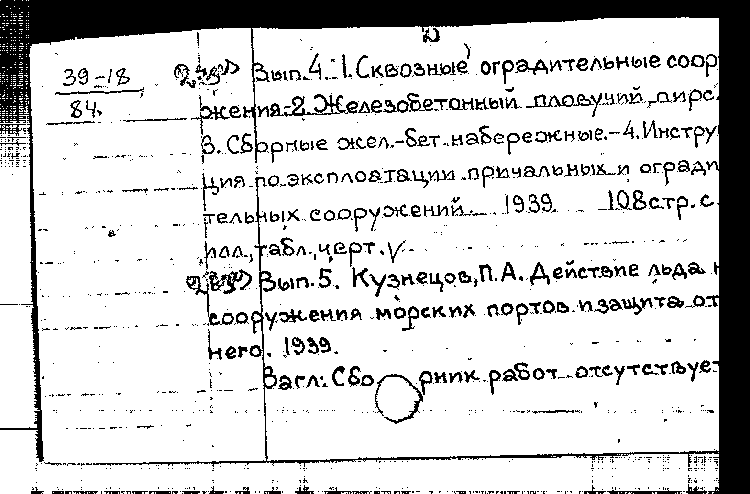 39-18
84.
Вып.4. 1. Сквозные оградительные соор
жения-2. Железобетонный пловучий пирс.
3. Сборные жел.-бет. набережные.-4. Инстру
ция по эксплоатации причальных и огради
тельных сооружений 1939 108 стр. с.
илл., табл., черт. V
Вып.5. Кузнецов, П.А. Действие льда н
сооружения морских портов и защита от
него. 1939.
Загл: Сборник работ отсутствует